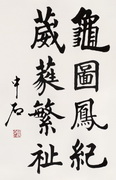 龜圖鳳紀
葳蕤繁祉
中石